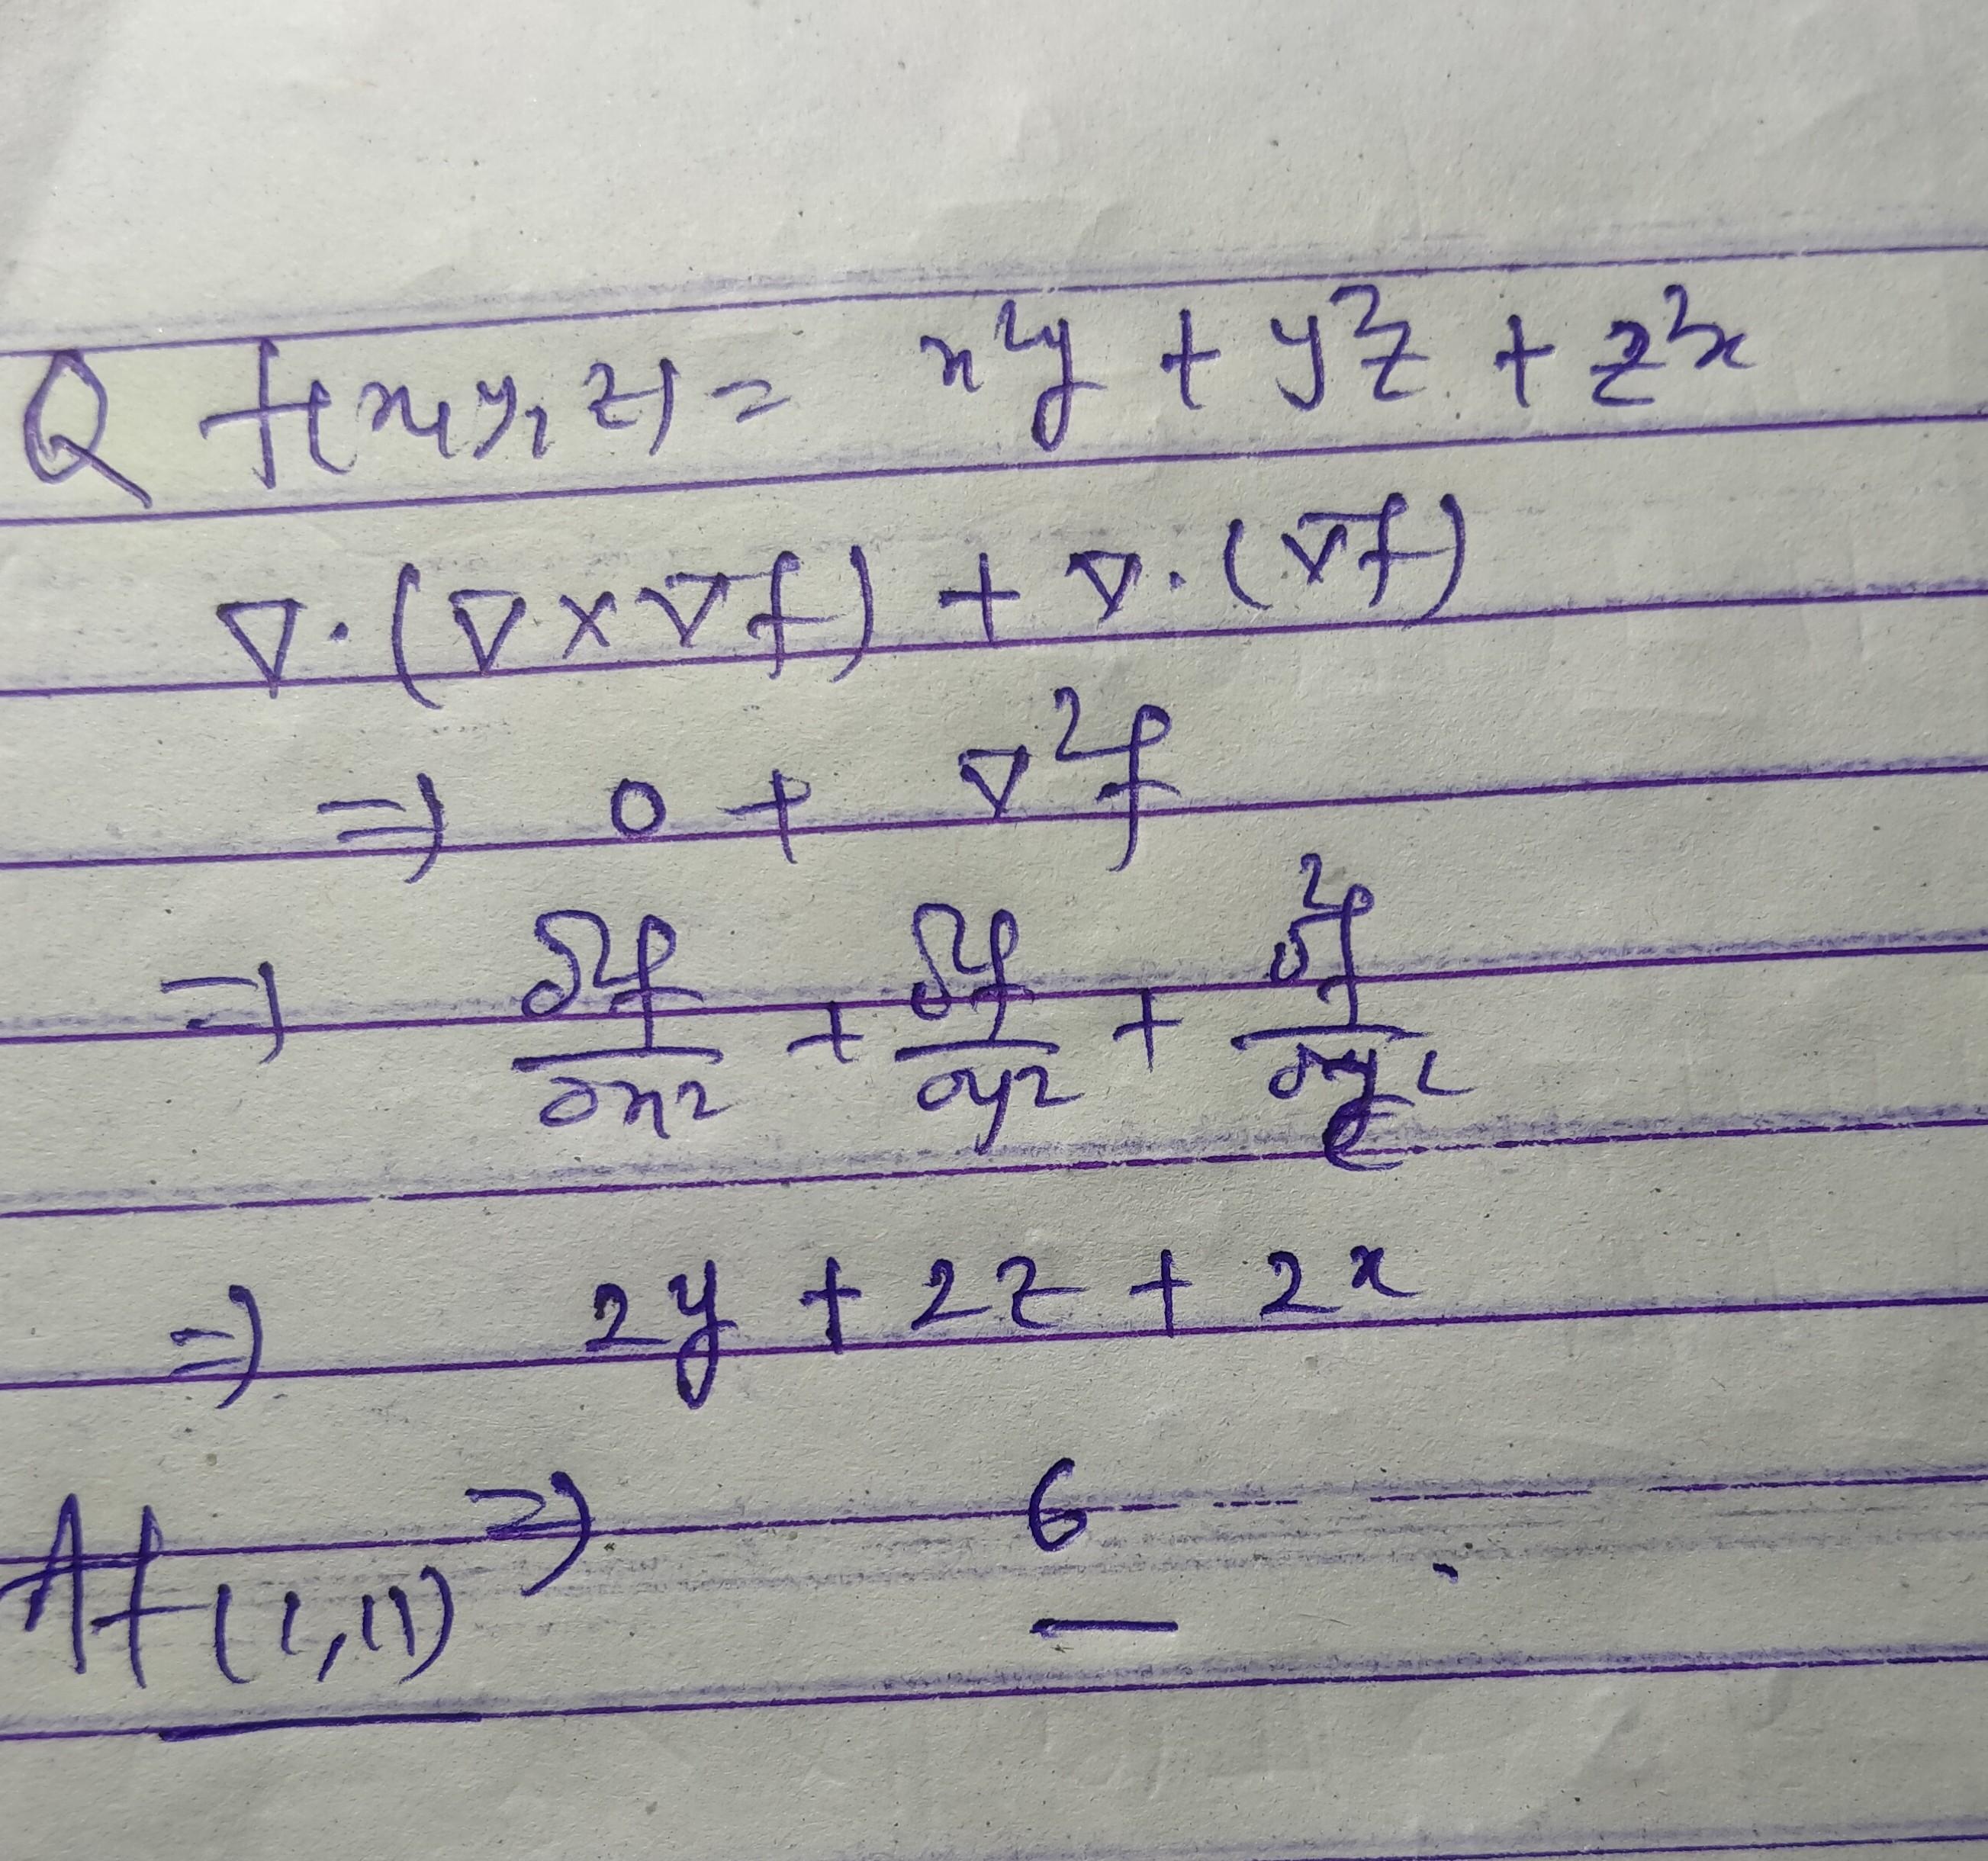 Q f(x,y,z) = x²y + y²z + z²x
∇·(∇×∇f) + ∇·(∇f)
⇒ 0 + ∇²f
⇒ ∂²f/∂x² + ∂²f/∂y² + ∂²f/∂z²
⇒ 2y + 2z + 2x
At (1,11) ⇒ 6